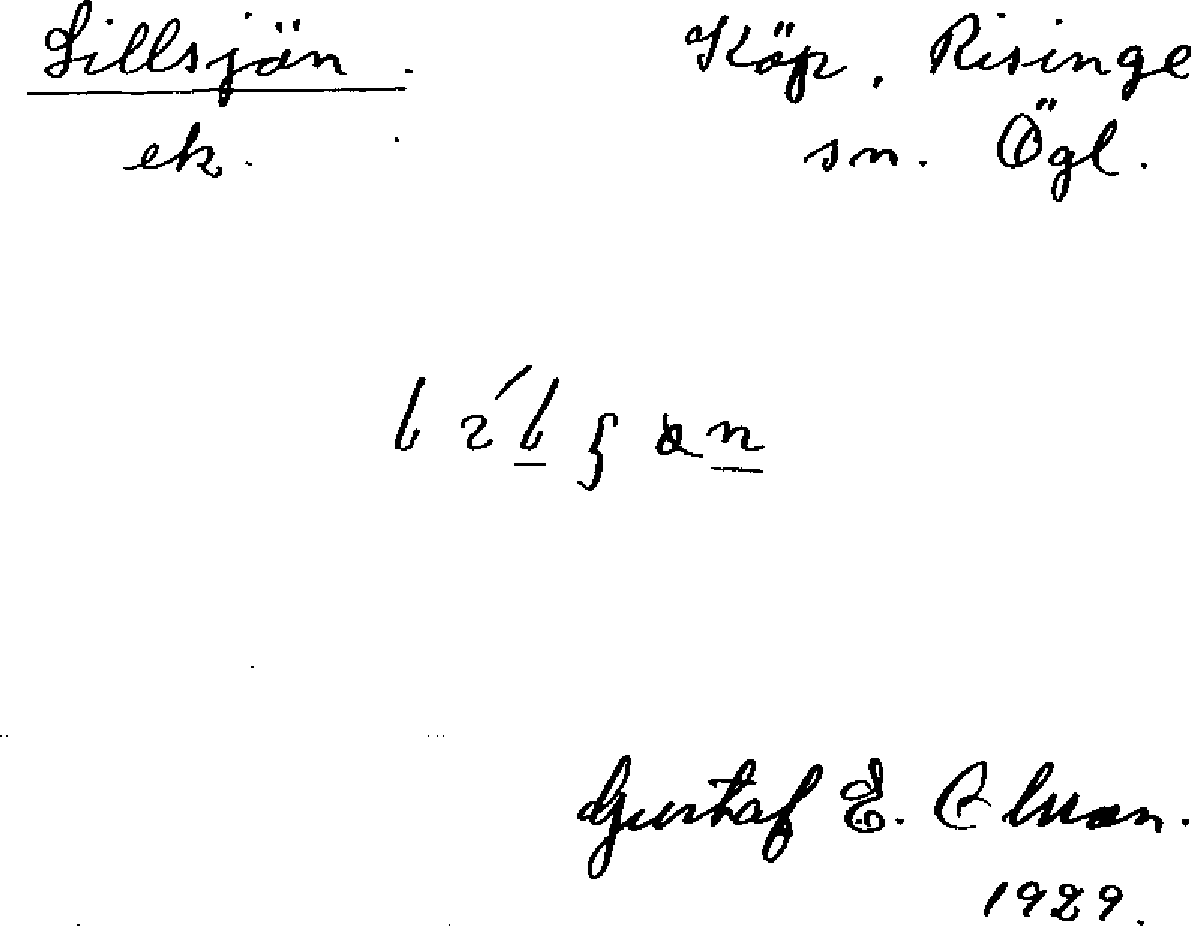 Lillsjön. Köp. Risinge
ek. sn. Ögl.
Gustaf E.
1929.